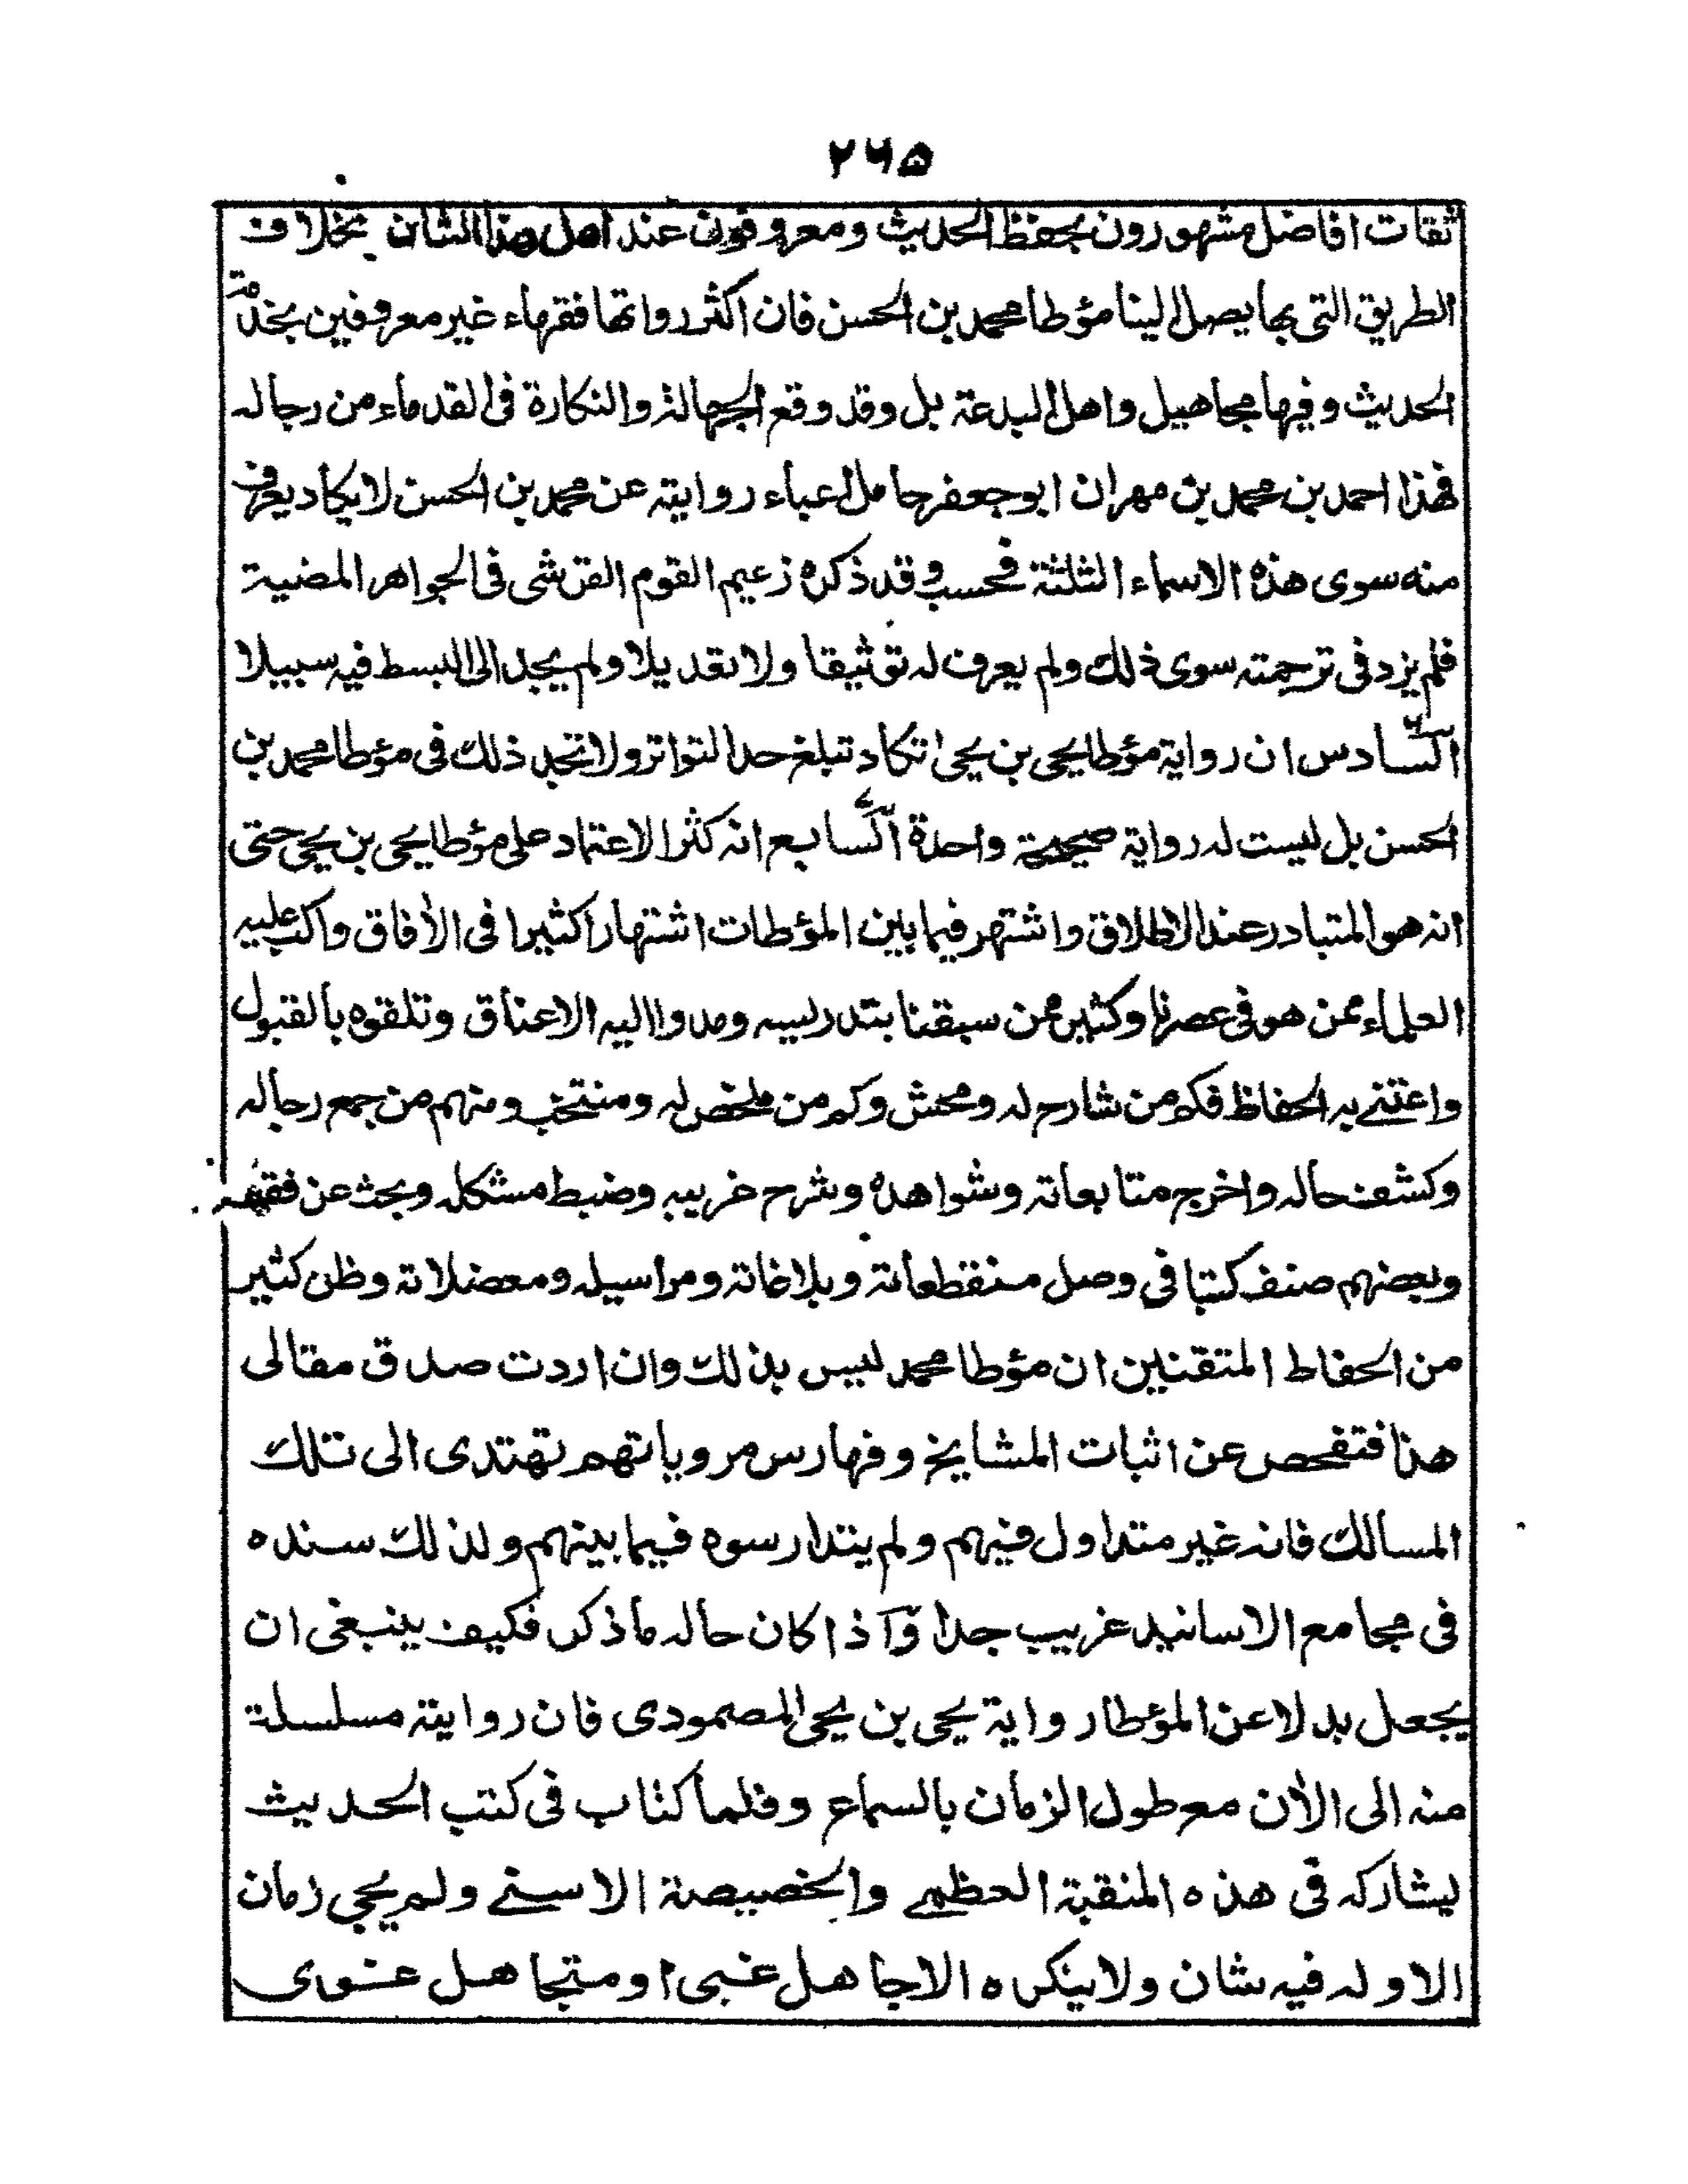 ٢٦٥
ثقات افاضل مشهورون بحفظ الحديث ومعروفون عند اهل هذا الشان بخلاف
الطريق التى بها يصل الينا مؤطا محمد بن الحسن فان اكثر رواتها فقهاء غير معروفين بخدمة
الحديث وفيها مجاهيل واهل البدعة بل وقد وقع الجهالة والنكارة فى القدماء من رجاله
فهذا احمد بن محمد بن مهران ابو جعفر حامل اعباء روايته عن محمد بن الحسن لا يكاد يعرف
منه سوى هذه الاسماء الثلثة فحسب وقد ذكره زعيم القوم القرشى فى الجواهر المضية
فلم يزد فى ترجمته سوى ذلك ولم يعرف له توثيقا ولا تعديلا ولم يجد الى البسط فيه سبيلا
السادس ان رواية مؤطا يحيى بن يحيى تكاد تبلغ حد التواتر ولا تجد ذلك فى مؤطا محمد بن
الحسن بل ليست له رواية صحيحة واحدة السابع انه كثر الاعتماد على مؤطا يحيى بن يحيى حتى
انه هو المتبادر عند الاطلاق واشتهر فيما بين المؤطات اشتهارا كثيرا فى الأفاق واكب عليه
العلماء ممن هو فى عصرنا وكثير ممن سبقنا بتدريسه ومدوا اليه الاعناق وتلقوه بالقبول
واعتنے به الحفاظ فكم من شارح له ومحش وكم من ملخص له ومنتخب ومنهم من جمع رجاله
وكشف حاله واخرج متابعاته وشواهده وشرح غريبه وضبط مشكله وبحث عن فقهه
وبعضهم صنف كتبا فى وصل منقطعاته وبلاغاته ومراسيله ومعضلاته وظن كثير
من الحفاظ المتقنين ان مؤطا محمد ليس بذلك وان اردت صدق مقالى
هذا فتفحص عن اثبات المشايخ وفهارس مروياتهم تهتدى الى تلك
المسالك فانه غير متداول فيهم ولم يتدارسوه فيما بينهم ولذلك سنده
فى مجامع الاسانيد غريب جدا وآذا كان حاله ما ذكر فكيف ينبغى ان
يجعل بدلا عن المؤطا رواية يحيى بن يحيى المصمودى فان روايته مسلسلة
منه الى الأن مع طول الزمان بالسماع وقلما كتاب فى كتب الحديث
يشاركه فى هذه المنقبة العظمے والخصيصة الاسنے ولم يجى زمان
الا وله فيه شان ولا ينكره الا جاهل غبى او متجاهل غوى